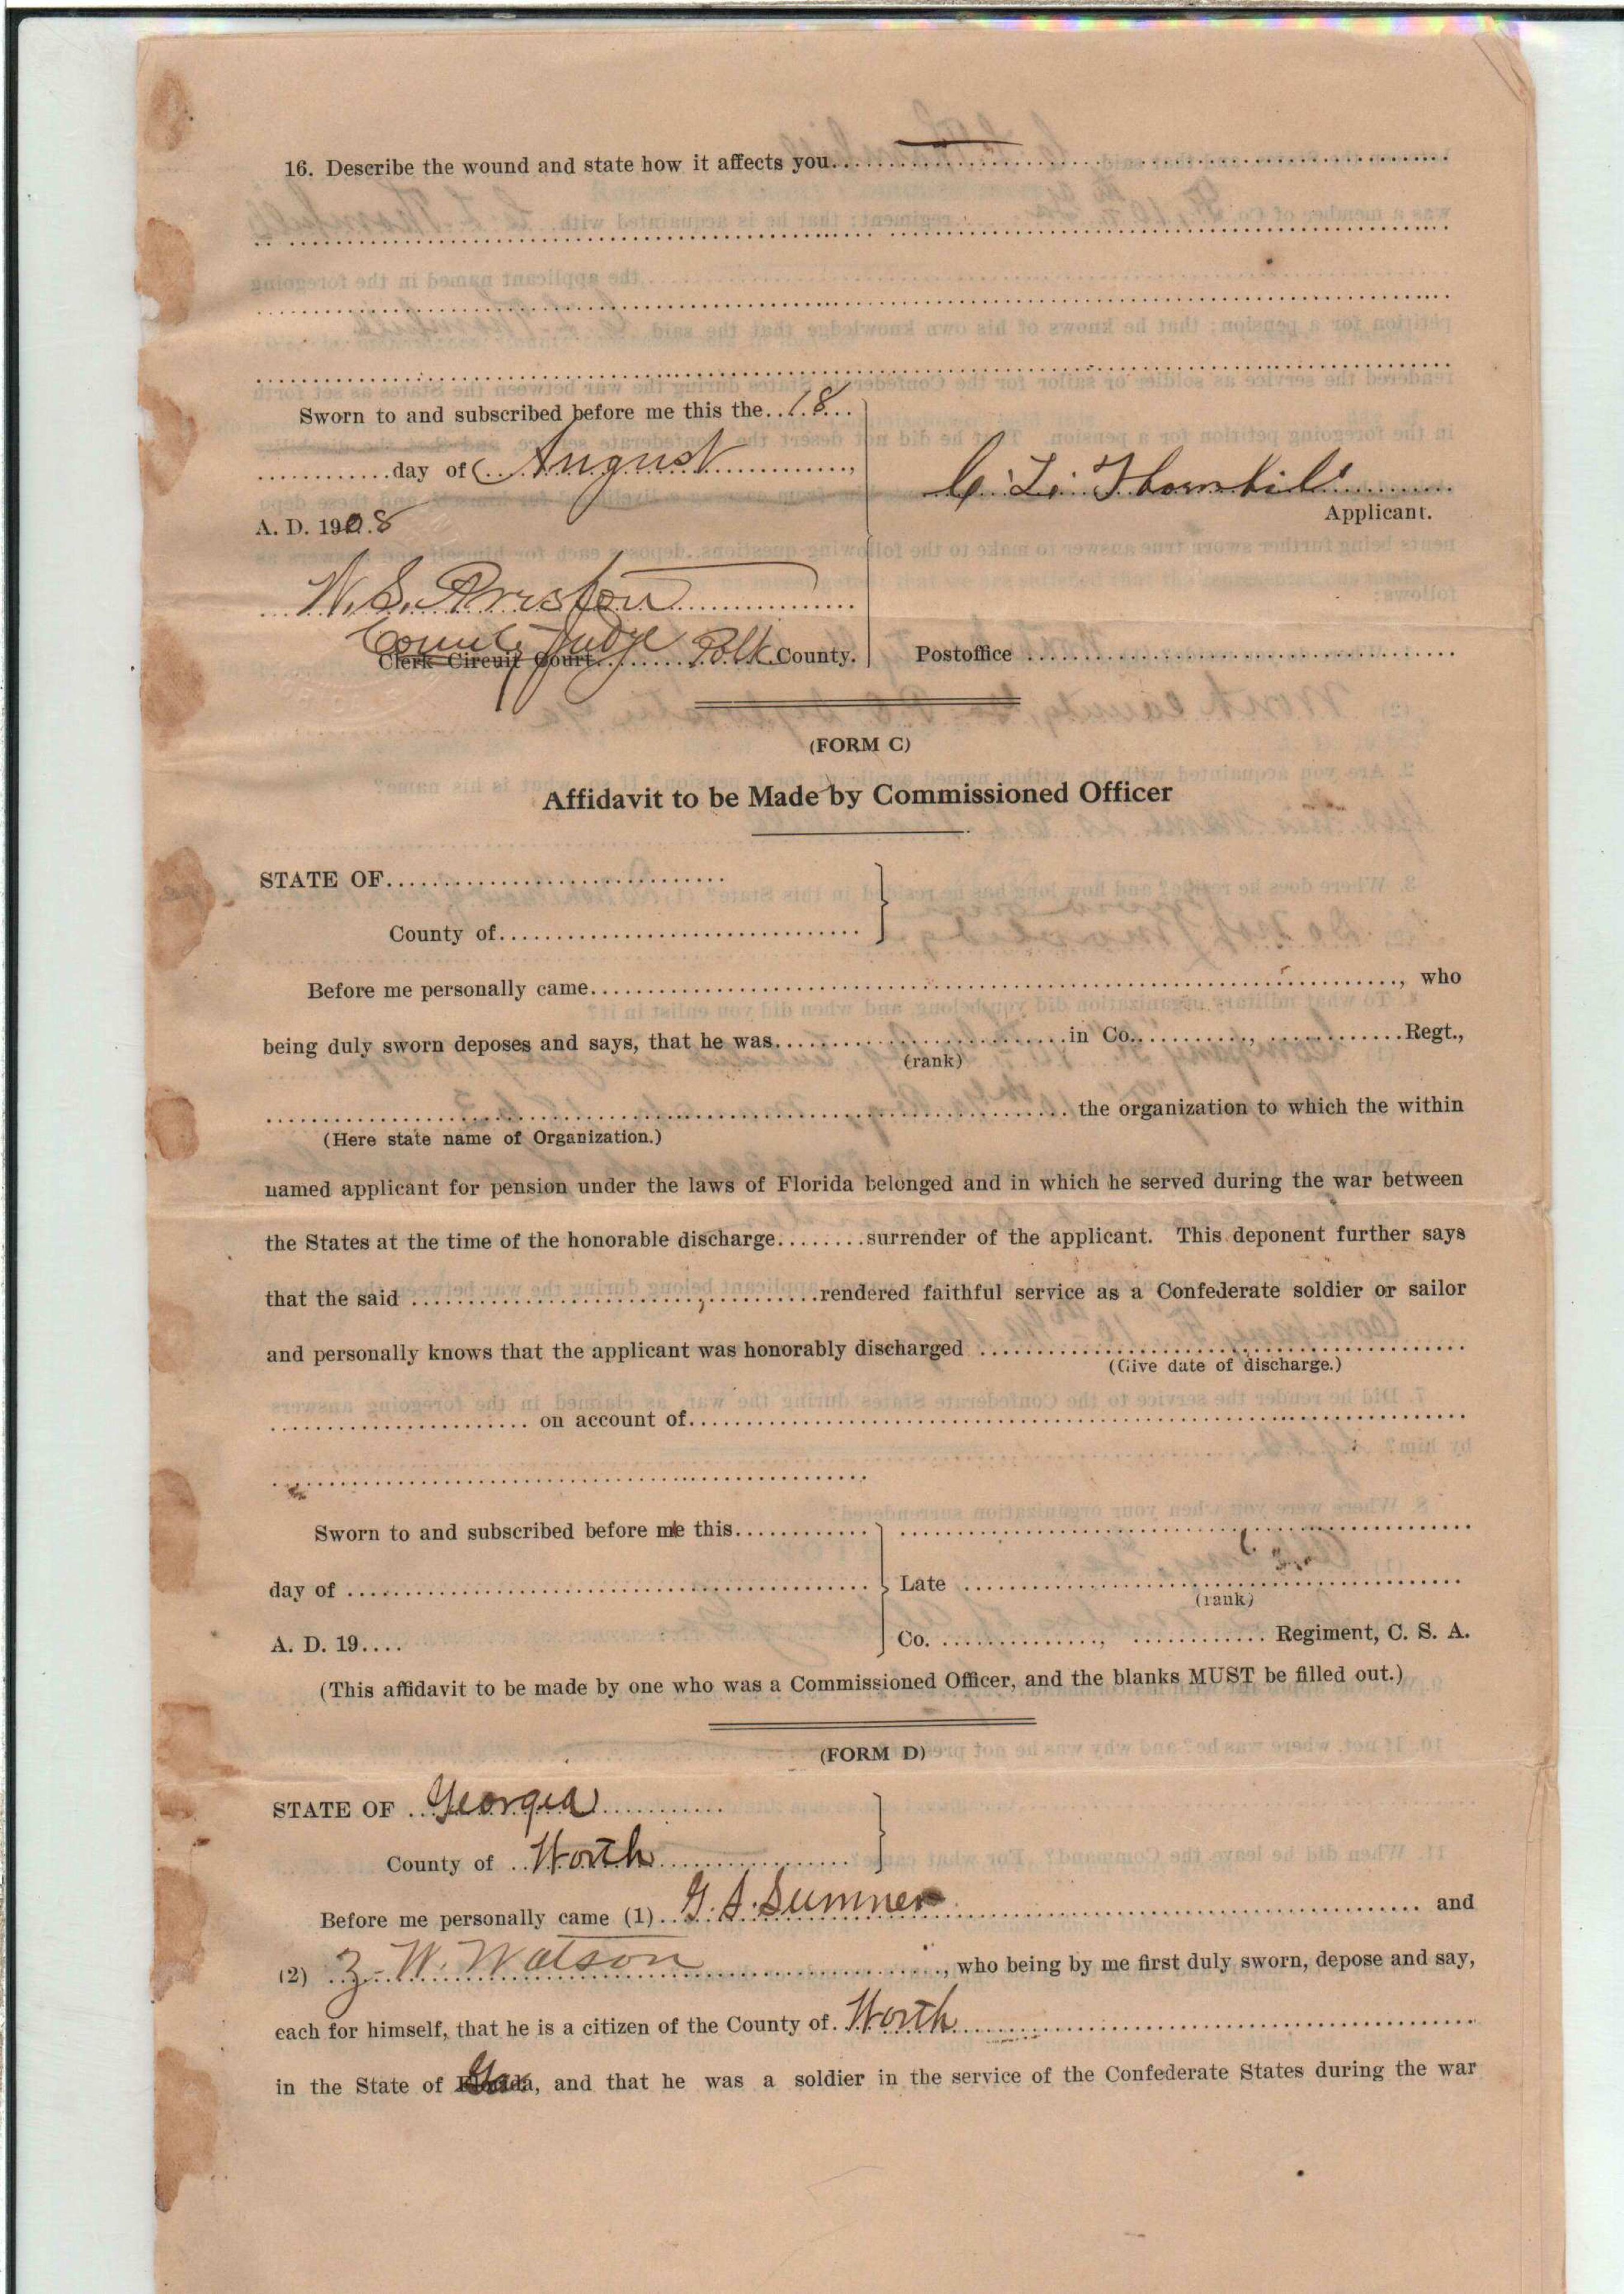 16. Describe the wound and state how it affects you
Sworn to and subscribed before me this the 18
day of August,
C. L. Thornhill
Applicant.
A. D. 1908
W. S. Preston
County Judge
Clerk Circuit Court Polk County.
Postoffice
(FORM C)
Affidavit to be Made by Commissioned Officer
STATE OF
County of
Before me personally came, who
being duly sworn deposes and says, that he was in Co., Regt.,
(rank)
the organization to which the within
(Here state name of Organization.)
named applicant for pension under the laws of Florida belonged and in which he served during the war between
the States at the time of the honorable discharge surrender of the applicant. This deponent further says
that the said rendered faithful service as a Confederate soldier or sailor
and personally knows that the applicant was honorably discharged
(Give date of discharge.)
on account of
Sworn to and subscribed before me this
day of
Late
(rank)
A. D. 19
Co. , Regiment, C. S. A.
(This affidavit to be made by one who was a Commissioned Officer, and the blanks MUST be filled out.)
(FORM D)
STATE OF Georgia
County of Worth
Before me personally came (1) G. A. Sumner and
(2) Z. W. Watson, who being by me first duly sworn, depose and say,
each for himself, that he is a citizen of the County of Worth
in the State of Florida Ga, and that he was a soldier in the service of the Confederate States during the war